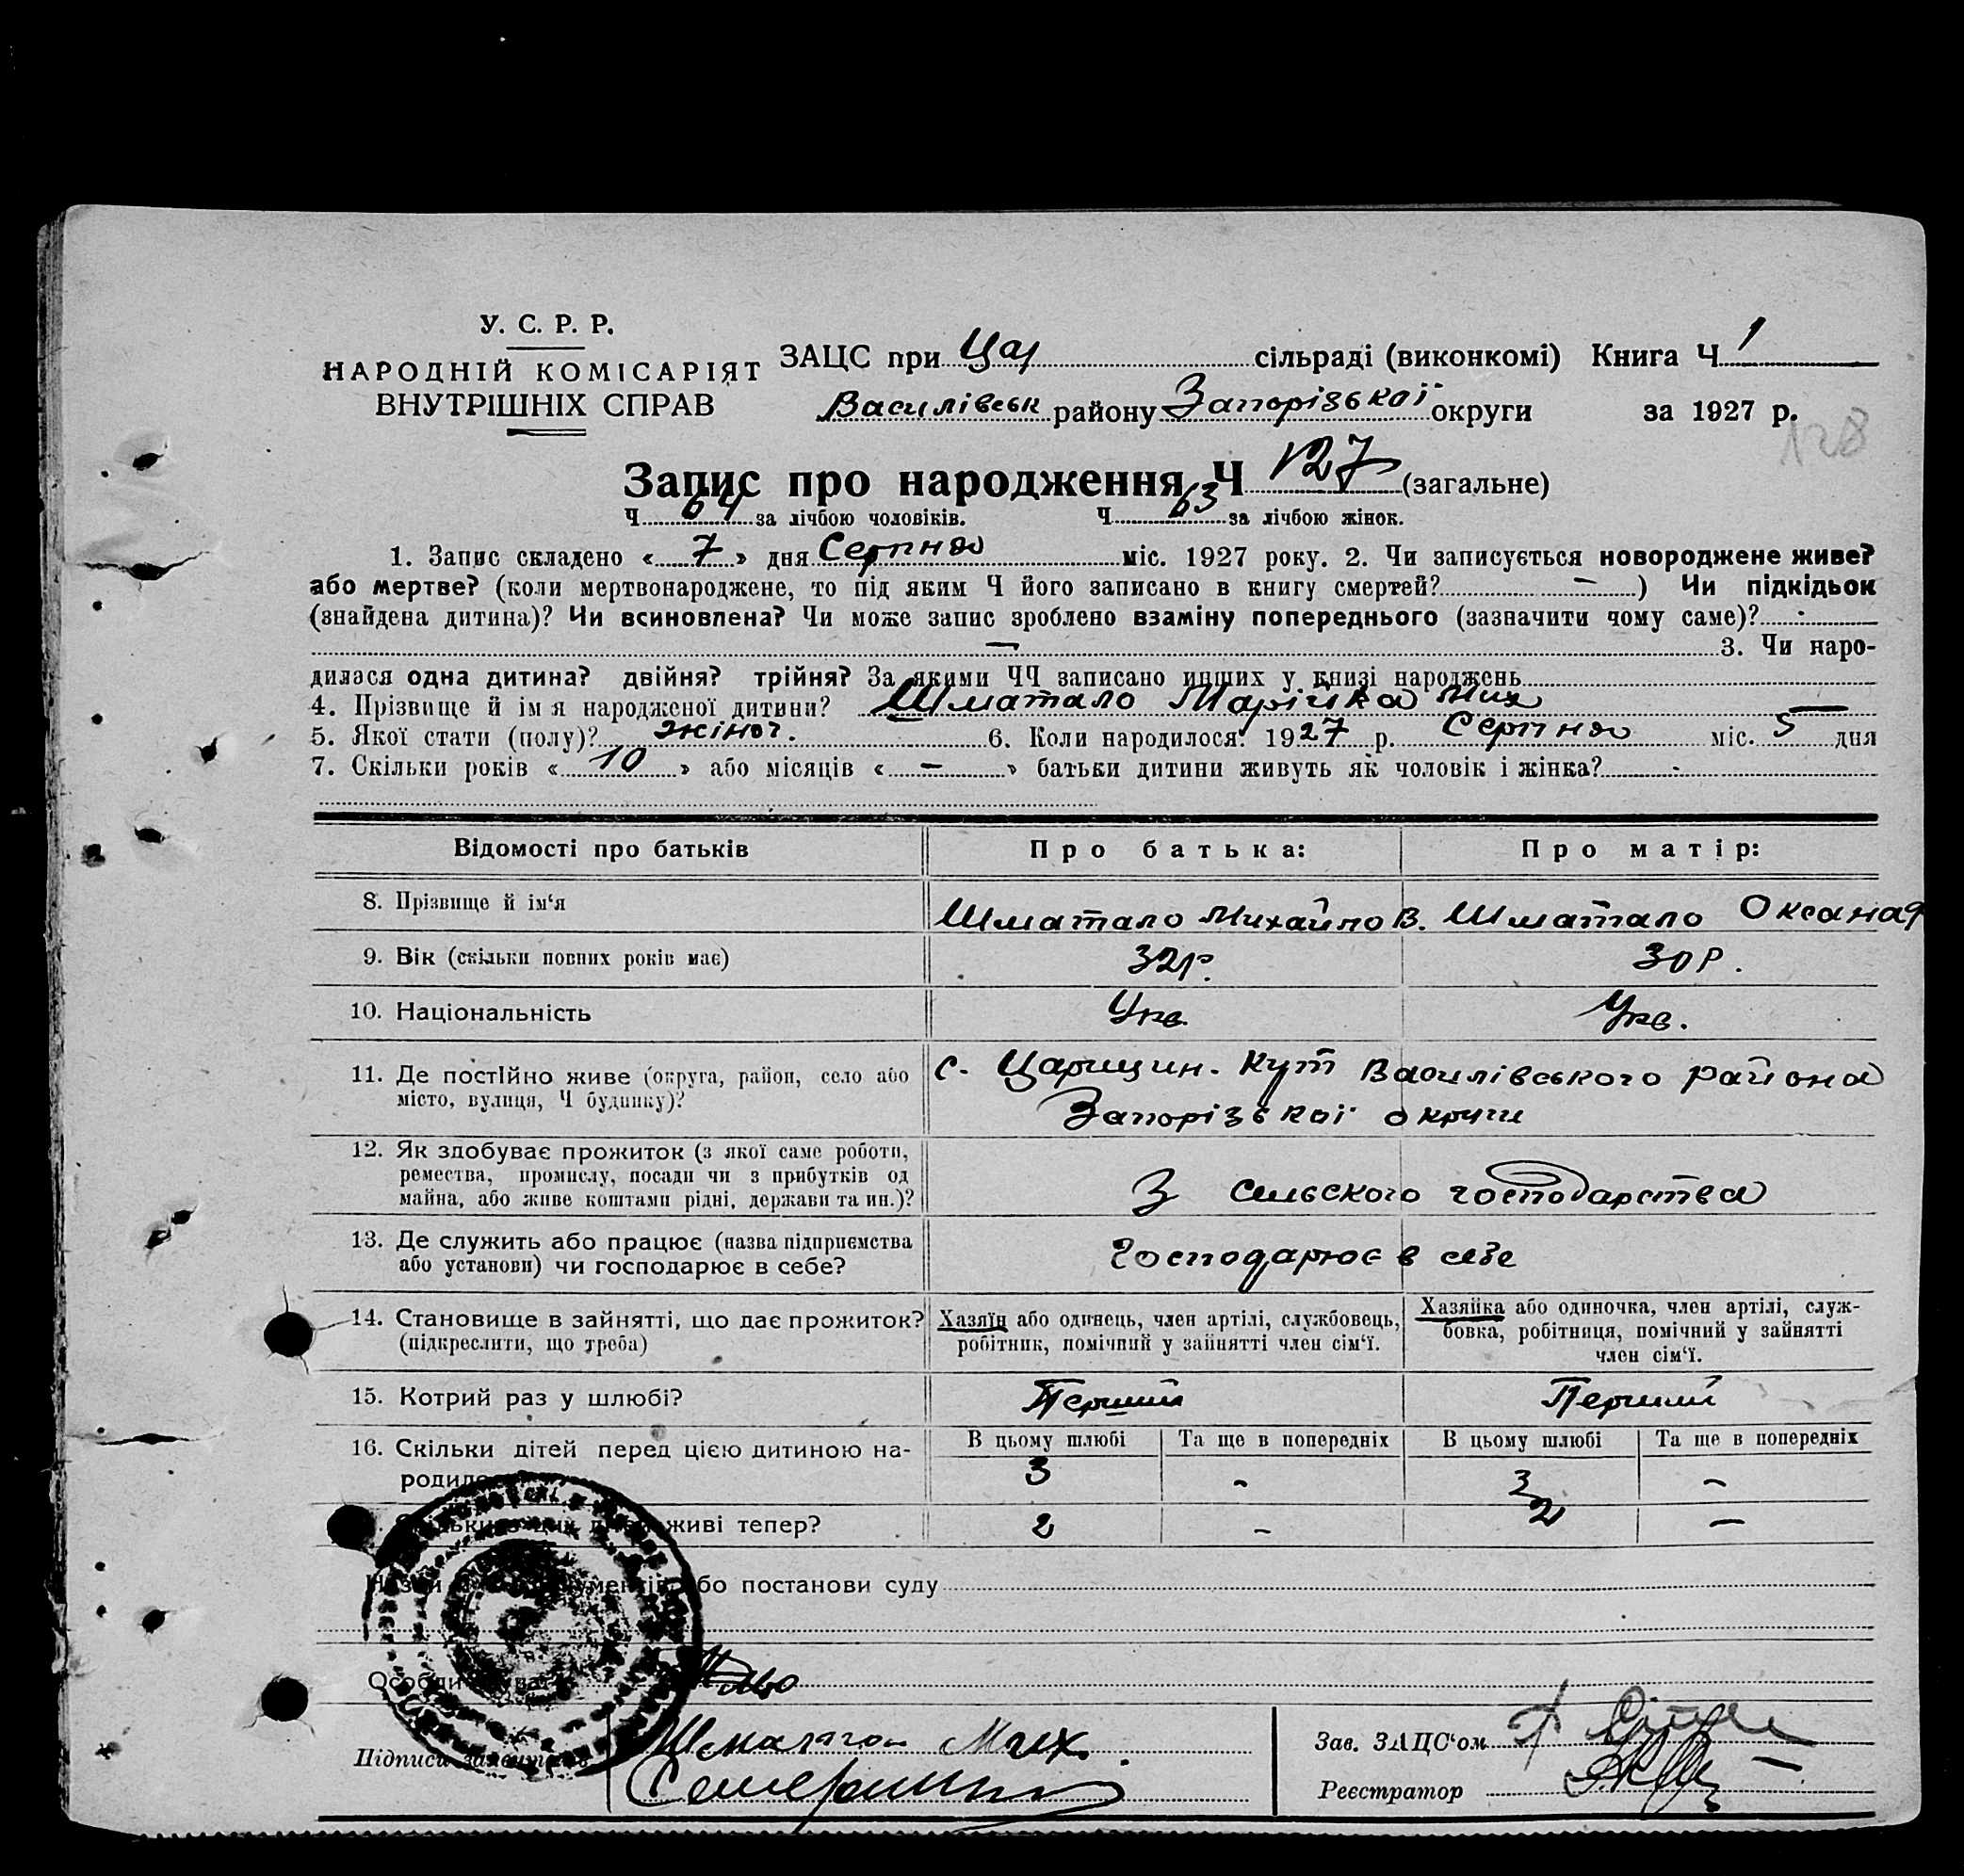 У. С. Р. Р.
НАРОДНІЙ КОМІСАРІЯТ
ВНУТРІШНІХ СПРАВ
ЗАЦС при Цар сільраді (виконкомі) Книга Ч 1
Василівськ району Запорізької округи за 1927 р.
128
Запис про народження Ч 127 (загальне)
Ч 64 за лічбою чоловіків. Ч 63 за лічбою жінок.
1. Запис складено « 7 » дня Серпня міс. 1927 року. 2. Чи записується новороджене живе?
або мертве? (коли мертвонароджене, то під яким Ч його записано в книгу смертей? — ) Чи підкідьок
(знайдена дитина)? Чи всиновлена? Чи може запис зроблено взаміну попереднього (зазначити чому саме)? -
— 3. Чи наро-
дилася одна дитина? двійня? трійня? За якими ЧЧ записано инших у книзі народжень
4. Прізвище й ім я народженої дитини? Шматало Марійка Мих —
5. Якої стати (полу)? жіноч. 6. Коли народилося: 1927 р. Серпня міс. 5 дня
7. Скільки років « 10 » або місяців « — » батьки дитини живуть як чоловік і жінка? -
Відомості про батьків Про батька: Про матір:
8. Прізвище й ім‘я Шматало Михайло В. Шматало Оксана
9. Вік (скільки повних років має) 32р. 30р.
10. Національність Укр. Укр.
11. Де постІйно живе (округа, район, село або с. Царицин. Кут Василівського района
місто, вулиця, Ч будинку)? Запорізької округи
12. Як здобуває прожиток (з якої саме роботи,
ремества, промислу, посади чи з прибутків од
майна, або живе коштами рідні, держави та ин.)? З сельского господарства
13. Де служить або працює (назва підприємства
або установи) чи господарює в себе? Господарює в себе
14. Становище в зайнятті, що дає прожиток? Хазяїн або одинець, член артілі, службовець, Хазяйка або одиночка, член артілі, служ-
(підкреслити, що треба) робітник, помічний у зайнятті член сім‘ї. бовка, робітниця, помічний у зайнятті
член сім‘ї.
15. Котрий раз у шлюбі? Перший Перший
16. Скільки дітей перед цією дитиною на- В цьому шлюбі Та ще в попередніх В цьому шлюбі Та ще в попередніх
3 - 3 -
живі тепер? 2 - 2 —
або постанови суду
Шматало Мих.
Зав. ЗАЦС‘ом
Підписи заявителів
Реєстратор